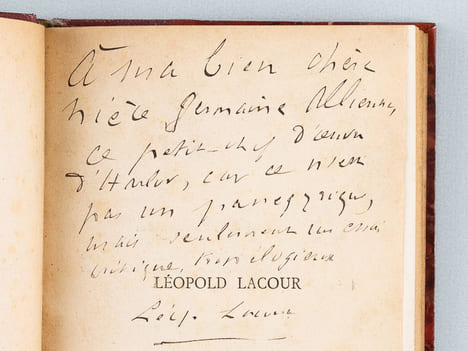 À ma bien chère
nièce Germaine
ce petit chef d'œuvre
car ce n'est
pas un panégyrique,
mais seulement un essai
critique, très élogieux
LÉOPOLD LACOUR
Léop. Lacour